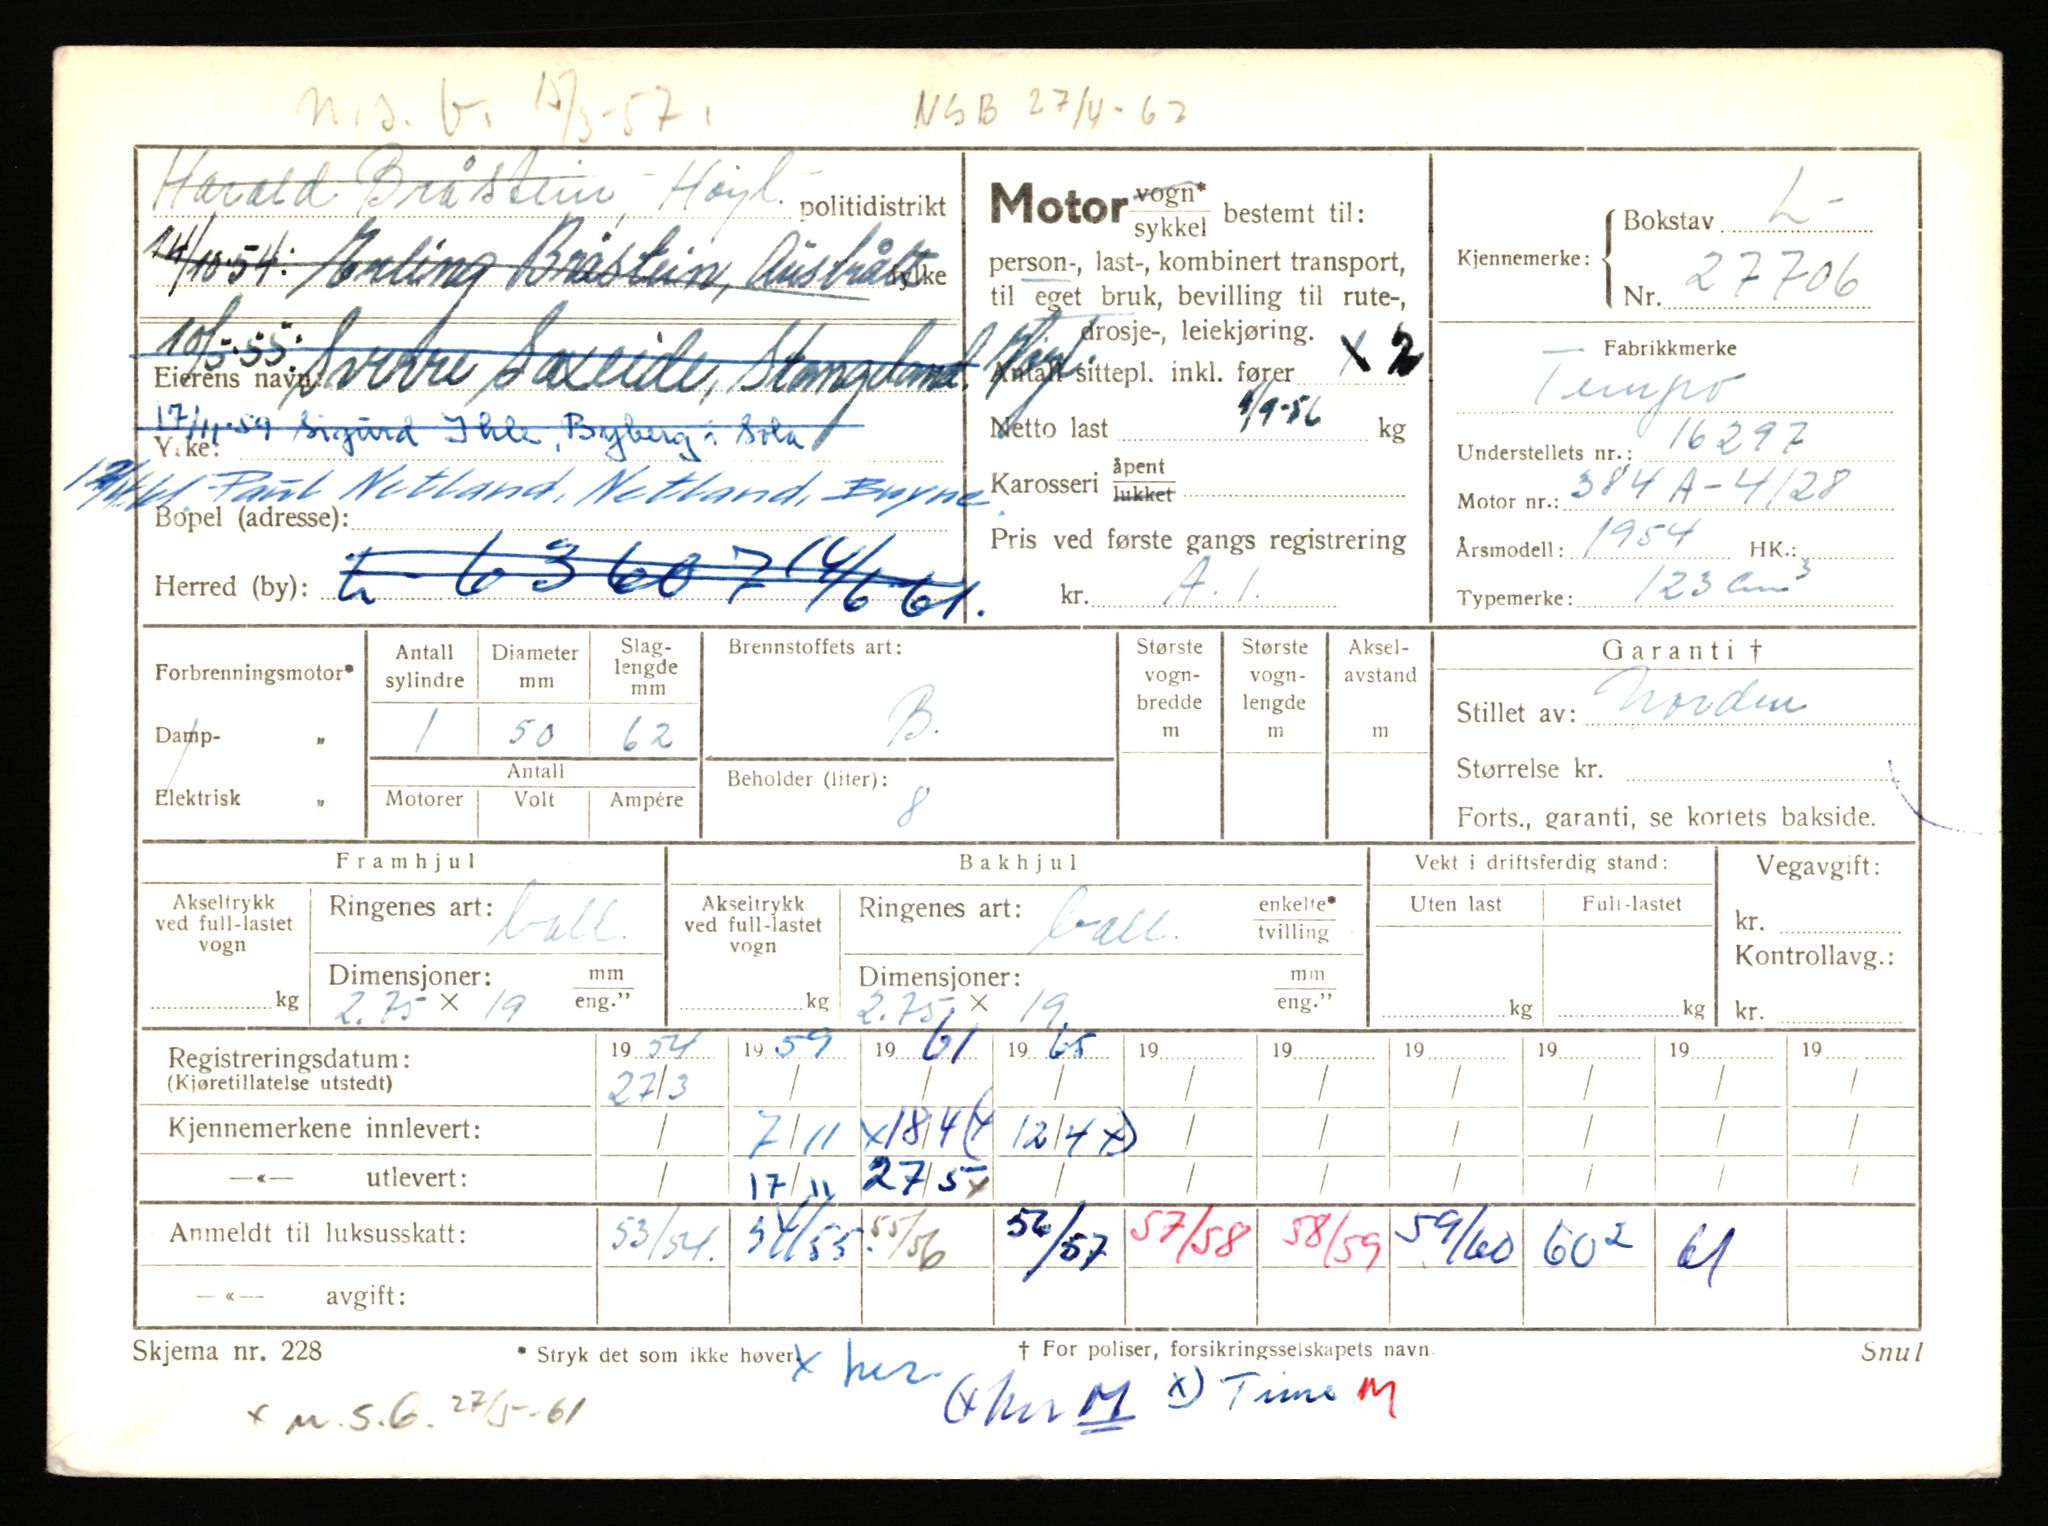 n.s.b. 15/3-57.
NSB 27/4-62
Harald Bråstein, Høyl. politidistrikt
14/10-54: Erling Bråstein, Austrått fylke
10/5-55: Sverre Saxeide, Stangeland. Høyl.
Eierens navn:
17/11-59 Sigurd Ihle, Byberg i Sola
Yrke:
Paul Netland, Netland, Bryne.
Bopel (adresse):
Herred (by): L- 63607 14/6-61.
Motor vogn* / sykkel bestemt til:
person-, last-, kombinert transport,
til eget bruk, bevilling til rute-,
drosje-, leiekjøring.
Antall sittepl. inkl. fører x 2
1/9-56
Netto last kg
Karosseri åpent / lukket
Pris ved første gangs registrering
kr. A. 1.
Kjennemerke: Bokstav L-
Nr. 27706
Fabrikkmerke
Tempo
Understellets nr.: 16297
Motor nr.: 384 A-4/28
Årsmodell: 1954 HK.:
Typemerke: 123 cm³
Forbrenningsmotor*
Damp- „
Elektrisk „
Antall sylindre
Diameter mm
Slaglengde mm
1 50 62
Antall
Motorer Volt Ampére
Brennstoffets art:
B.
Beholder (liter):
8
Største vogn-bredde m
Største vogn-lengde m
Aksel-avstand m
Garanti †
Stillet av: Norden
Størrelse kr.
Forts., garanti, se kortets bakside.
Framhjul
Akseltrykk ved full-lastet vogn
kg
Ringenes art: ball.
Dimensjoner: mm / eng.”
2.75 x 19
Bakhjul
Akseltrykk ved full-lastet vogn
kg
Ringenes art: ball. enkelte* / tvilling
Dimensjoner: mm / eng.”
2.75 x 19
Vekt i driftsferdig stand:
Uten last Full-lastet
kg kg
Vegavgift:
kr.
Kontrollavg.:
kr.
Registreringsdatum: 19 54 19 59 19 61 19 65 19 19 19 19 19 19
(Kjøretillatelse utstedt) 27/3 / / / / / / / / /
Kjennemerkene innlevert: / 7/11 x18/4(x 12/4 x) / / / / / /
—«— utlevert: / 17/11 27/5 x / / / / / / /
Anmeldt til luksusskatt: 53/54. 54/55. 55/56 56/57 57/58 58/59 59/60 60² 61
—«— avgift:
Skjema nr. 228 * Stryk det som ikke høver. † For poliser, forsikringsselskapets navn. Snul
x her.
(x her M x) Time M
x n.s.b. 27/5-61